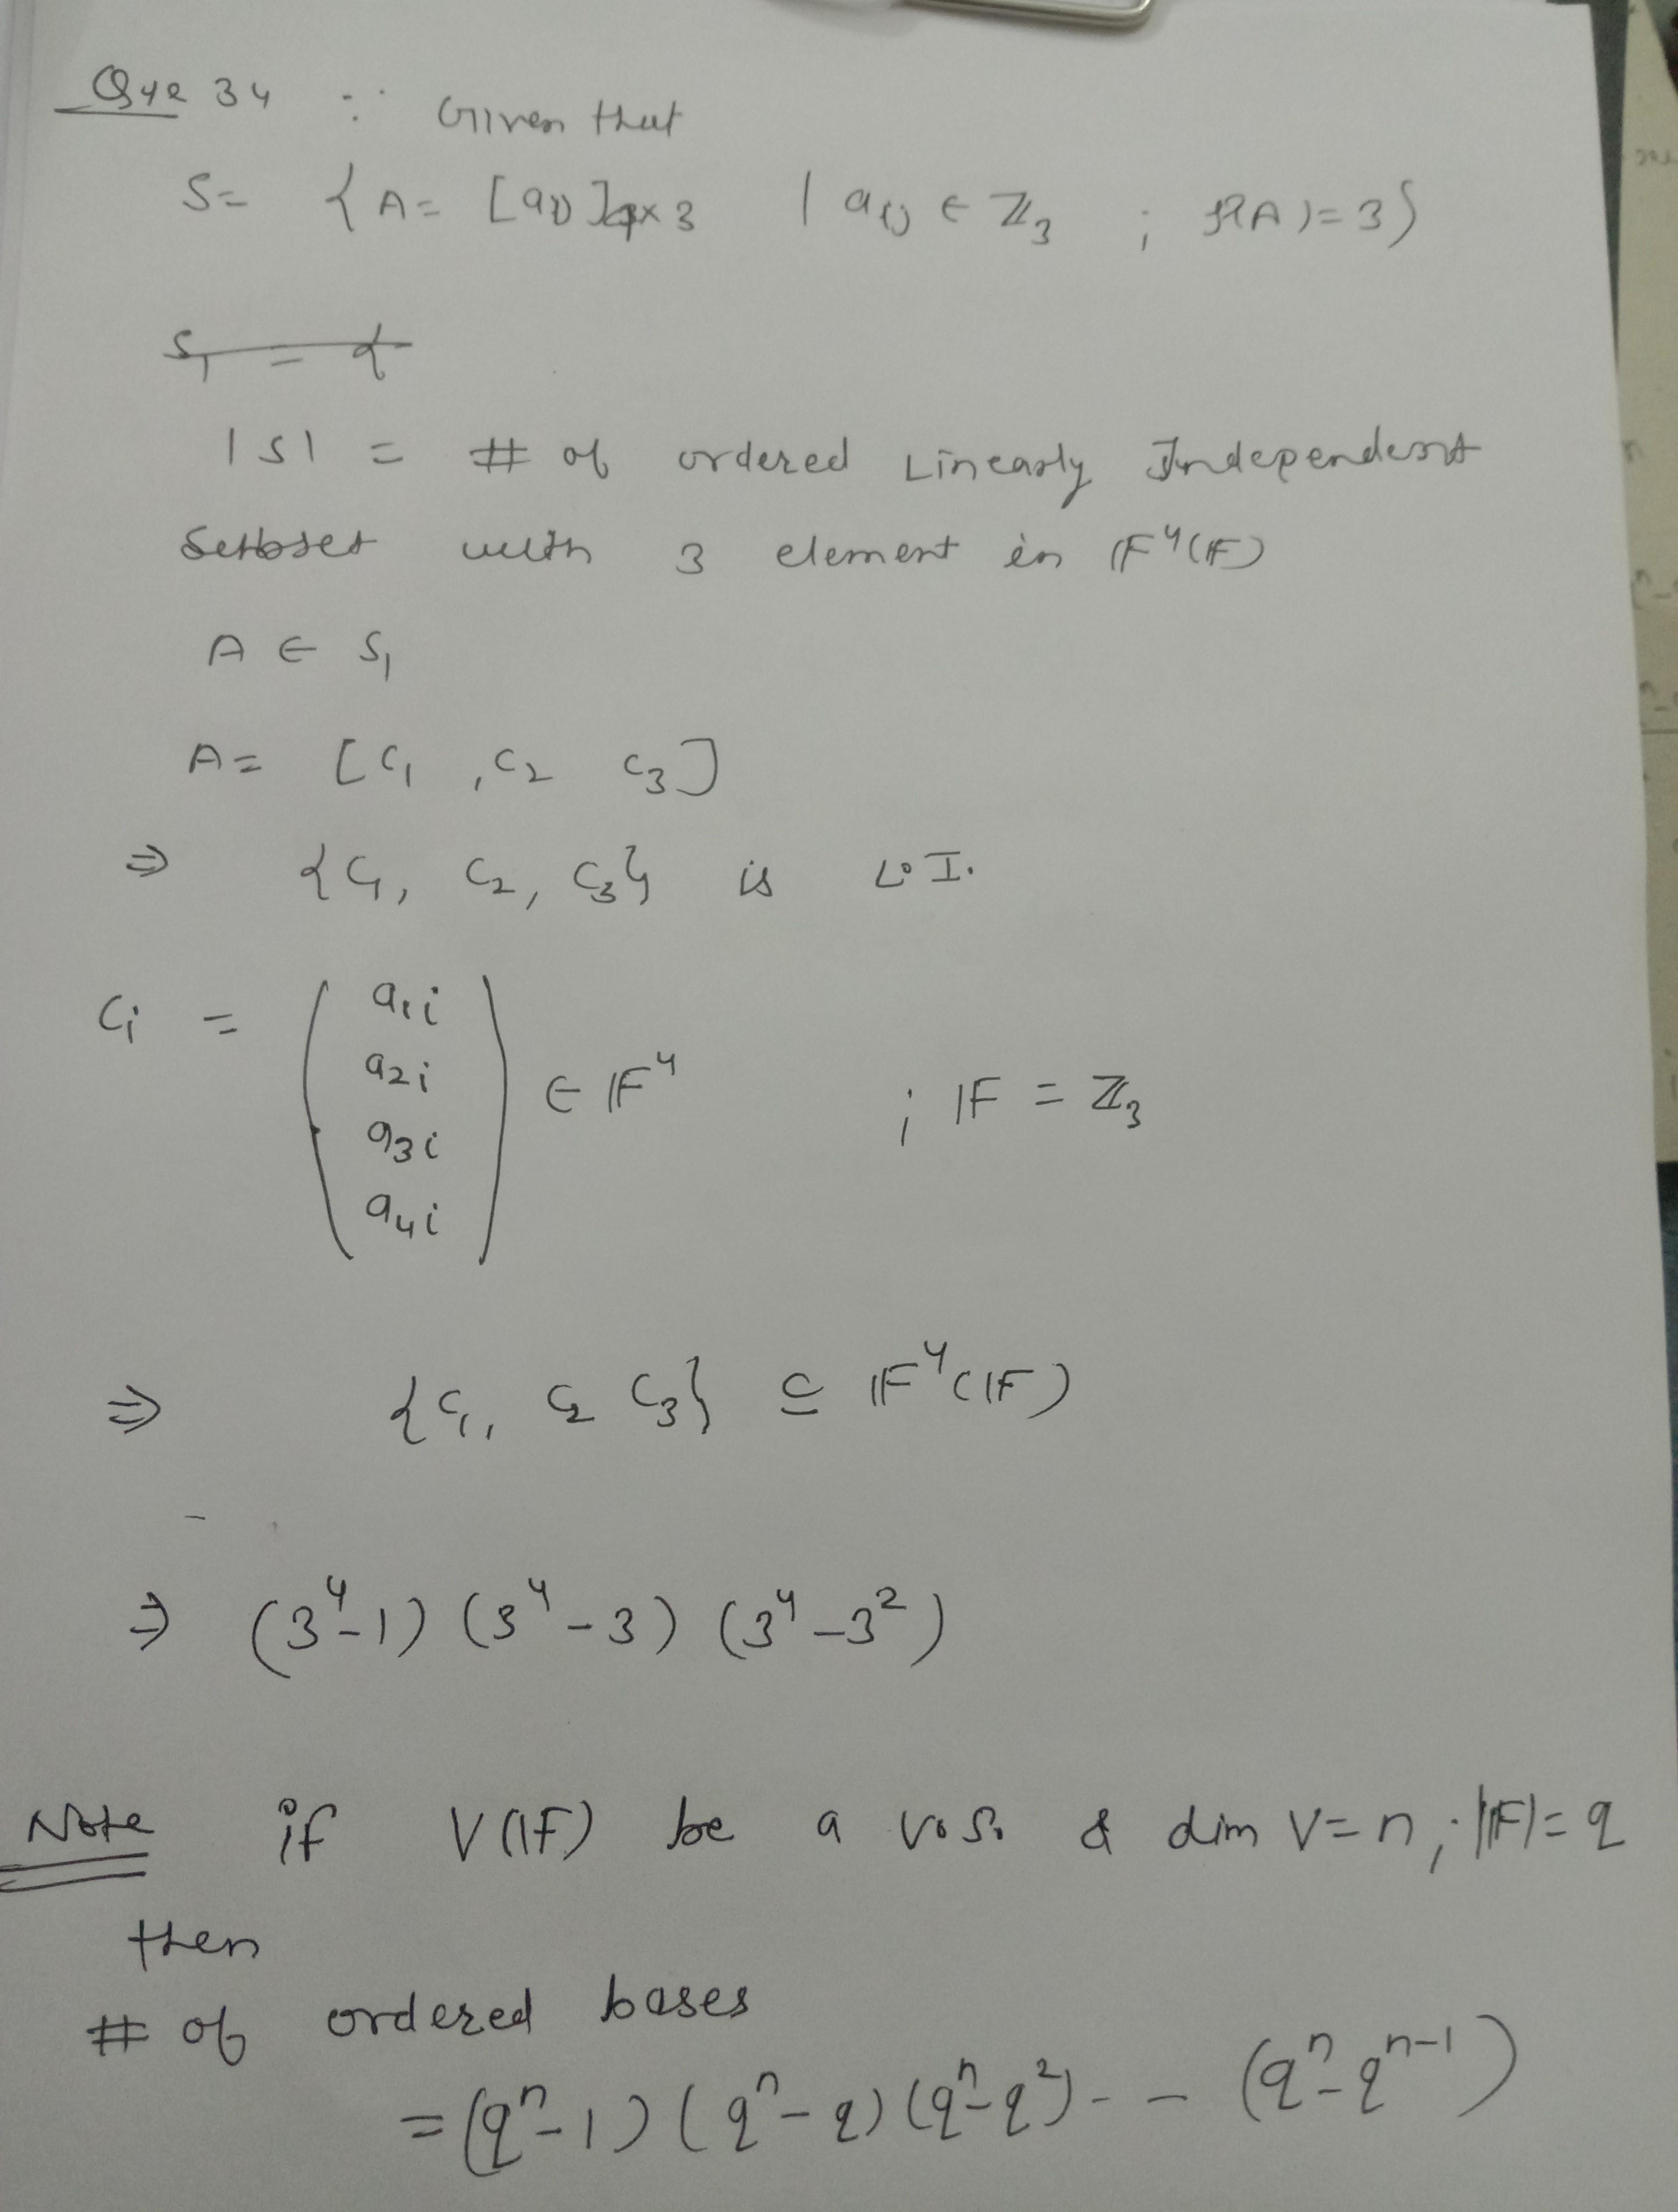 Que 34 :· Given that
S= { A= [aij]4×3 | aij ∈ ℤ3 ; ρ(A)=3}
S1 = {
|S| = # of ordered Linearly Independent
Setbset with 3 element in 𝔽⁴(𝔽)
A ∈ S1
A= [C1 ,C2 C3]
⇒ {C1, C2, C3} is L.I.
Ci = (a1i
a2i
a3i
a4i) ∈ 𝔽⁴ ; 𝔽 = ℤ3
⇒ {C1, C2 C3} ⊆ 𝔽⁴(𝔽)
⇒ (3⁴-1) (3⁴-3) (3⁴-3²)
Note if V(𝔽) be a V.S. & dim V=n ; |𝔽|= q
then
# of ordered bases
= (qⁿ-1) (qⁿ-q) (qⁿ-q²) - - (qⁿ-qⁿ⁻¹)